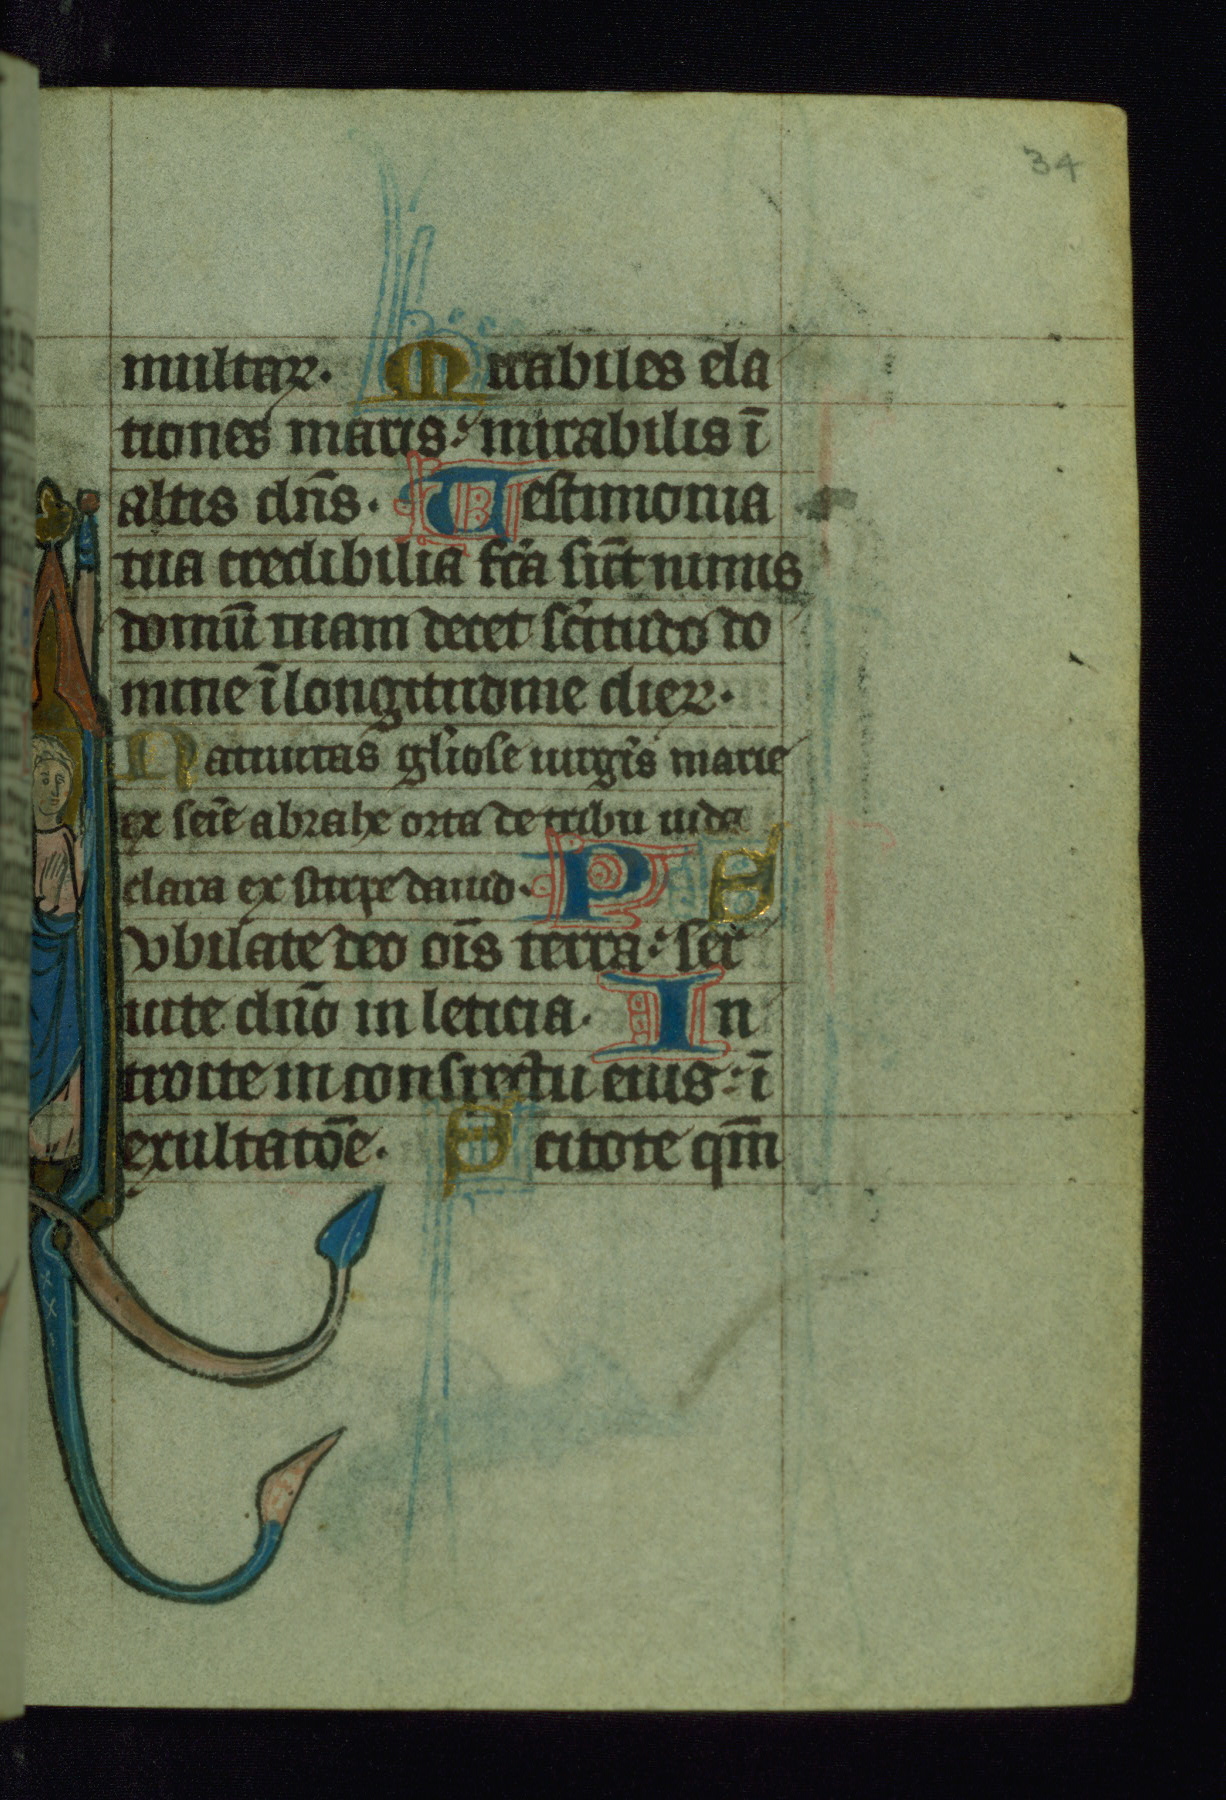 34
multaꝝ. Mirabiles ela
tiones maris: mirabilis ī
altis dn̄s. Testimonia
tua credibilia fc̄a sūt nimis
domū tuam decet sc̄itudo do
mine ī longitudine dieꝝ.
Natiuitas gl̓iose uirgīs marie
ex sēīe abrahe orta de tribu iuda
clara ex stirpe dauid. PS
vbilate deo oīs terra: ser
uite dn̄o in leticia. In
troite in conspectu eius: ī
exultatōe. Scitote qm̄